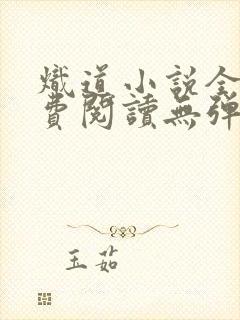 熾道小說全
費閱讀無彈
玉茹